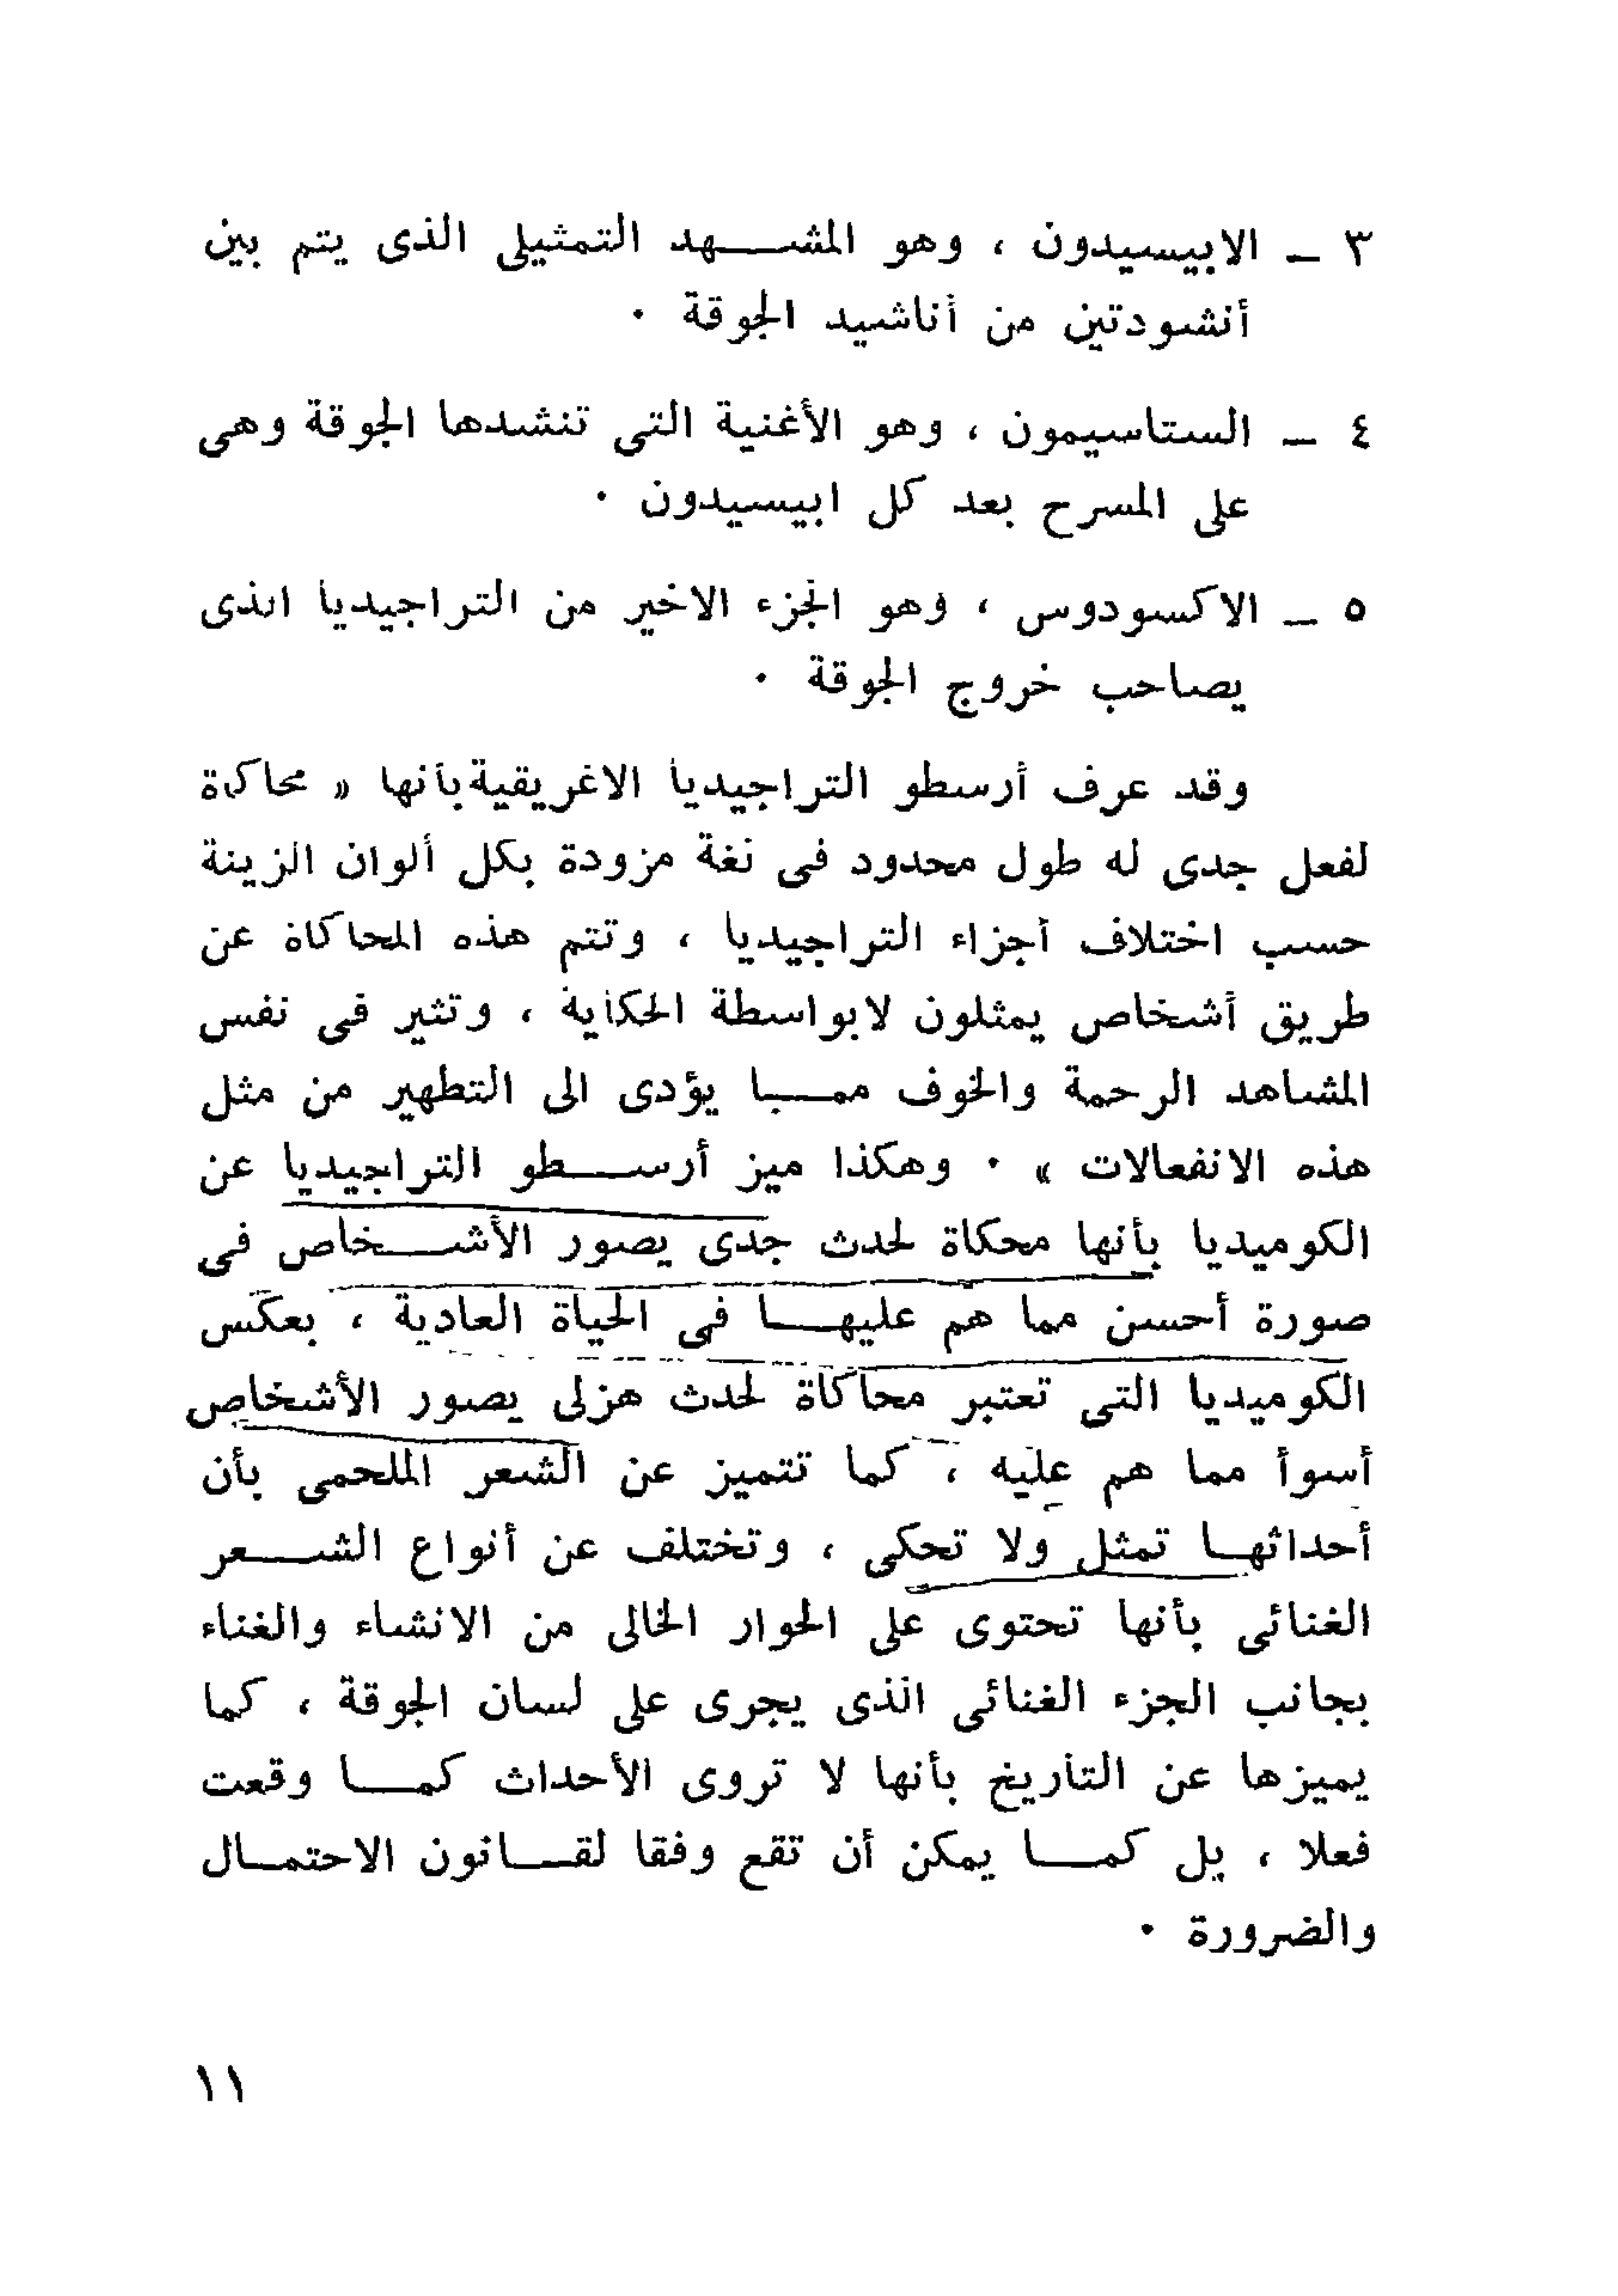 ٣ ــ الابيسيدون ، وهو المشهد التمثيلى الذى يتم بين
أنشودتين من أناشيد الجوقة ٠
٤ ــ الستاسيمون ، وهو الأغنية التى تنشدها الجوقة وهى
على المسرح بعد كل ابيسيدون ٠
٥ ــ الاكسودوس ، وهو الجزء الاخير من التراجيديا الذى
يصاحب خروج الجوقة ٠
وقد عرف أرسطو التراجيديا الاغريقية بأنها « محاكاة
لفعل جدى له طول محدود فى لغة مزودة بكل ألوان الزينة
حسب اختلاف أجزاء التراجيديا ، وتتم هذه المحاكاة عن
طريق أشخاص يمثلون لابواسطة الحكاية ، وتثير فى نفس
المشاهد الرحمة والخوف مما يؤدى الى التطهير من مثل
هذه الانفعالات » ٠ وهكذا ميز أرسطو التراجيديا عن
الكوميديا بأنها محكاة لحدث جدى يصور الأشخاص فى
صورة أحسن مما هم عليها فى الحياة العادية ، بعكس
الكوميديا التى تعتبر محاكاة لحدث هزلى يصور الأشخاص
أسوأ مما هم عليه ، كما تتميز عن الشعر الملحمى بأن
أحداثها تمثل ولا تحكى ، وتختلف عن أنواع الشعر
الغنائى بأنها تحتوى على الحوار الخالى من الانشاء والغناء
بجانب الجزء الغنائى الذى يجرى على لسان الجوقة ، كما
يميزها عن التأريخ بأنها لا تروى الأحداث كما وقعت
فعلا ، بل كما يمكن أن تقع وفقا لقانون الاحتمال
والضرورة ٠
١١